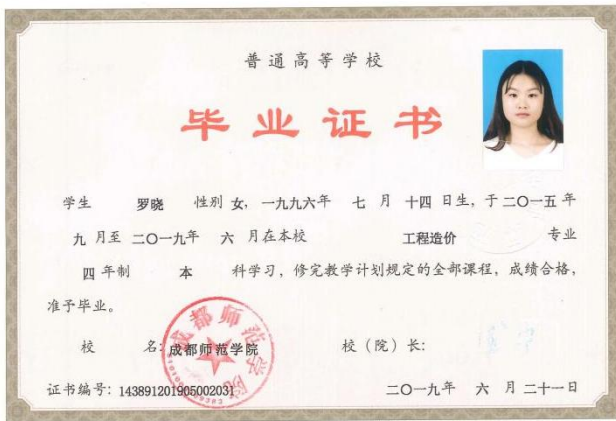 普通高等学校
毕业证书
学生 罗晓 性别 女，一九九六年 七 月 十四 日生，于二〇一五年
九 月至 二〇一九年 六 月在本校 工程造价 专业
四 年制 本 科学习，修完教学计划规定的全部课程，成绩合格，
准予毕业。
校 名：成都师范学院 校（院）长：
成都师范学院
证书编号：143891201905002031 二〇一九年 六 月 二十一日